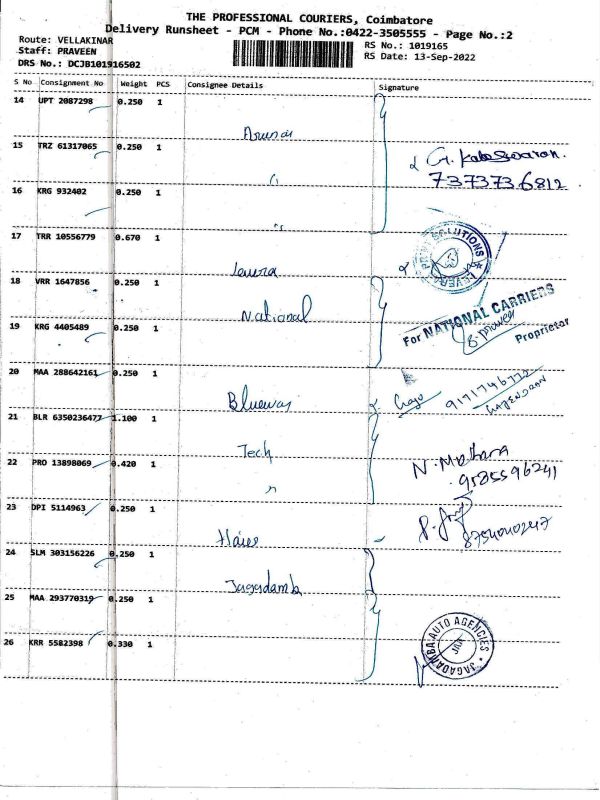 THE PROFESSIONAL COURIERS, Coimbatore
Delivery Runsheet - PCM - Phone No.:0422-3505555 - Page No.:2
Route: VELLAKINAR
RS No.: 1019165
Staff: PRAVEEN
RS Date: 13-Sep-2022
DRS No.: DCJB101916502
S No Consignment No Weight PCS Consignee Details Signature
14 UPT 2087298 0.250 1
15 TRZ 61317065 0.250 1
7373736812
16 KRG 932402 0.250 1
17 TRR 10556779 0.670 1
PRINT SOLUTIONS
18 VRR 1647856 0.250 1
National
For NATIONAL CARRIERS
Proprietor
19 KRG 4405489 0.250 1
20 MAA 288642161 0.250 1
21 BLR 6350236477 1.100 1
Tech
22 PRO 13898069 0.420 1
9585596241
23 DPI 5114963 0.250 1
24 SLM 303156226 0.250 1
Jagadamba
25 MAA 293770319 0.250 1
26 KRR 5582398 0.330 1
JAGADAMBA AUTO AGENCIES